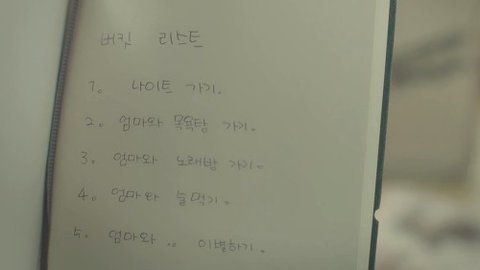 버킷 리스트
1. 나이트 가기.
2. 엄마와 목욕탕 가기.
3. 엄마와 노래방 가기.
4. 엄마와 술먹기.
5. 엄마와 .. 이별하기.